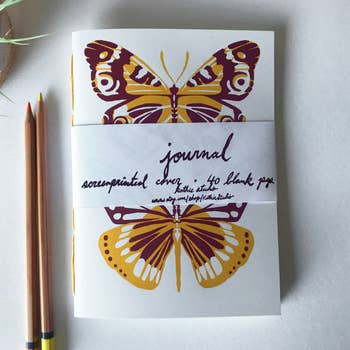 journal
screenprinted cover · 40 blank pgs
kathie sticho
www.etsy.com/shop/kathiesticho